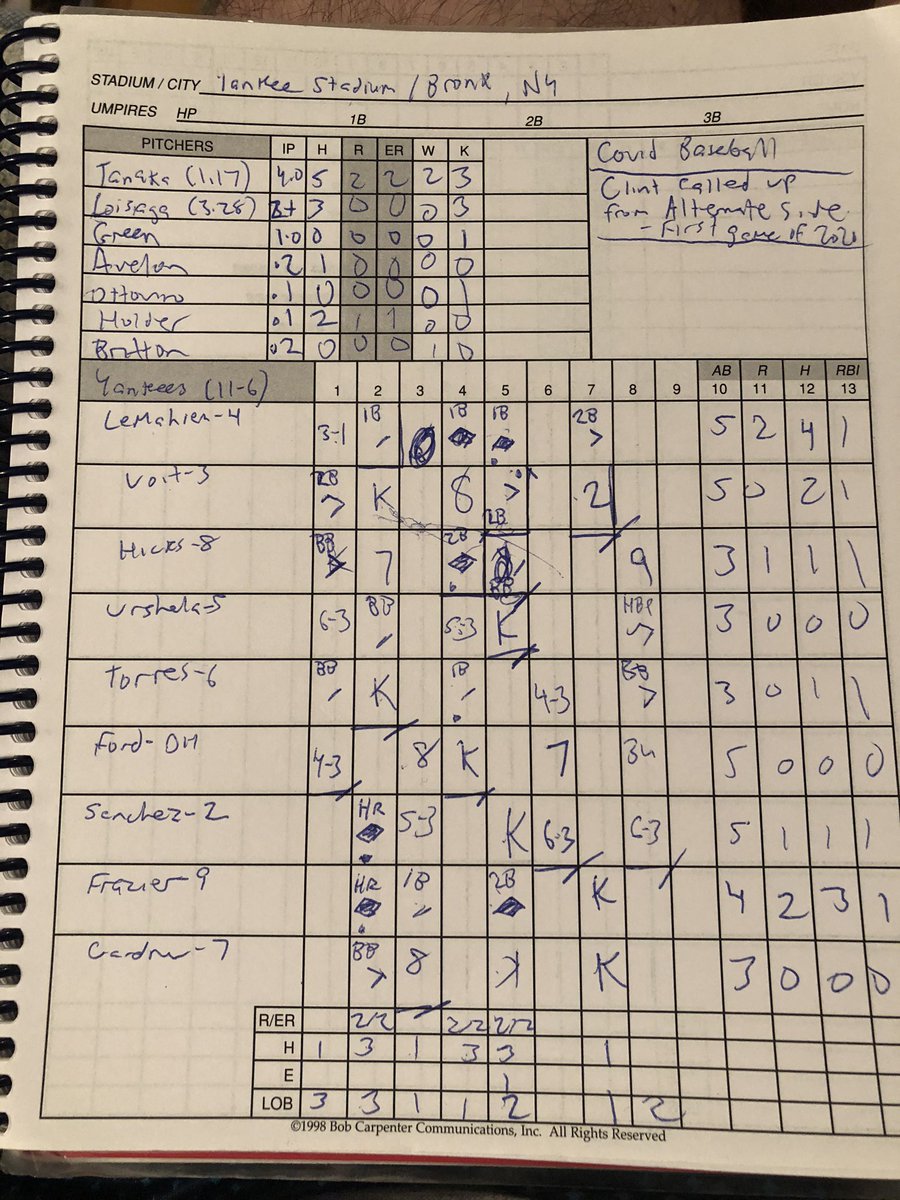 STADIUM / CITY Yankee Stadium / Bronx, NY
UMPIRES HP 1B 2B 3B
PITCHERS IP H R ER W K
Covid Baseball
Tanaka (1.17) 4.0 5 2 2 2 3
Clint called up
Loisaga (3.28) 3+ 3 0 0 0 3
from Alternate Side
Green 1.0 0 0 0 0 1
- First game of 2020
Avelan .2 1 0 0 0 0
Ottavino .1 0 0 0 0 1
Holder .1 2 1 1 0 0
Britton .2 0 0 0 1 0
Yankees (11-6) 1 2 3 4 5 6 7 8 9 AB 10 R 11 H 12 RBI 13
LeMahieu-4 3-1 1B 1B 1B 2B 5 2 4 1
Voit-3 2B K 8 2B 2 5 0 2 1
Hicks-8 BB 7 2B BB 9 3 1 1 1
Urshela-5 6-3 BB 5-3 K HBP 3 0 0 0
Torres-6 BB K 1B 4-3 BB 3 0 1 1
Ford-DH 4-3 8 K 7 3u 5 0 0 0
Sanchez-2 HR 5-3 K 6-3 6-3 5 1 1 1
Frazier-9 HR 1B 2B K 4 2 3 1
Gardner-7 BB 8 K K 3 0 0 0
R/ER 2/2 2/2 2/2
H 1 3 1 3 3 1
E 1
LOB 3 3 1 1 2 1 2
©1998 Bob Carpenter Communications, Inc. All Rights Reserved